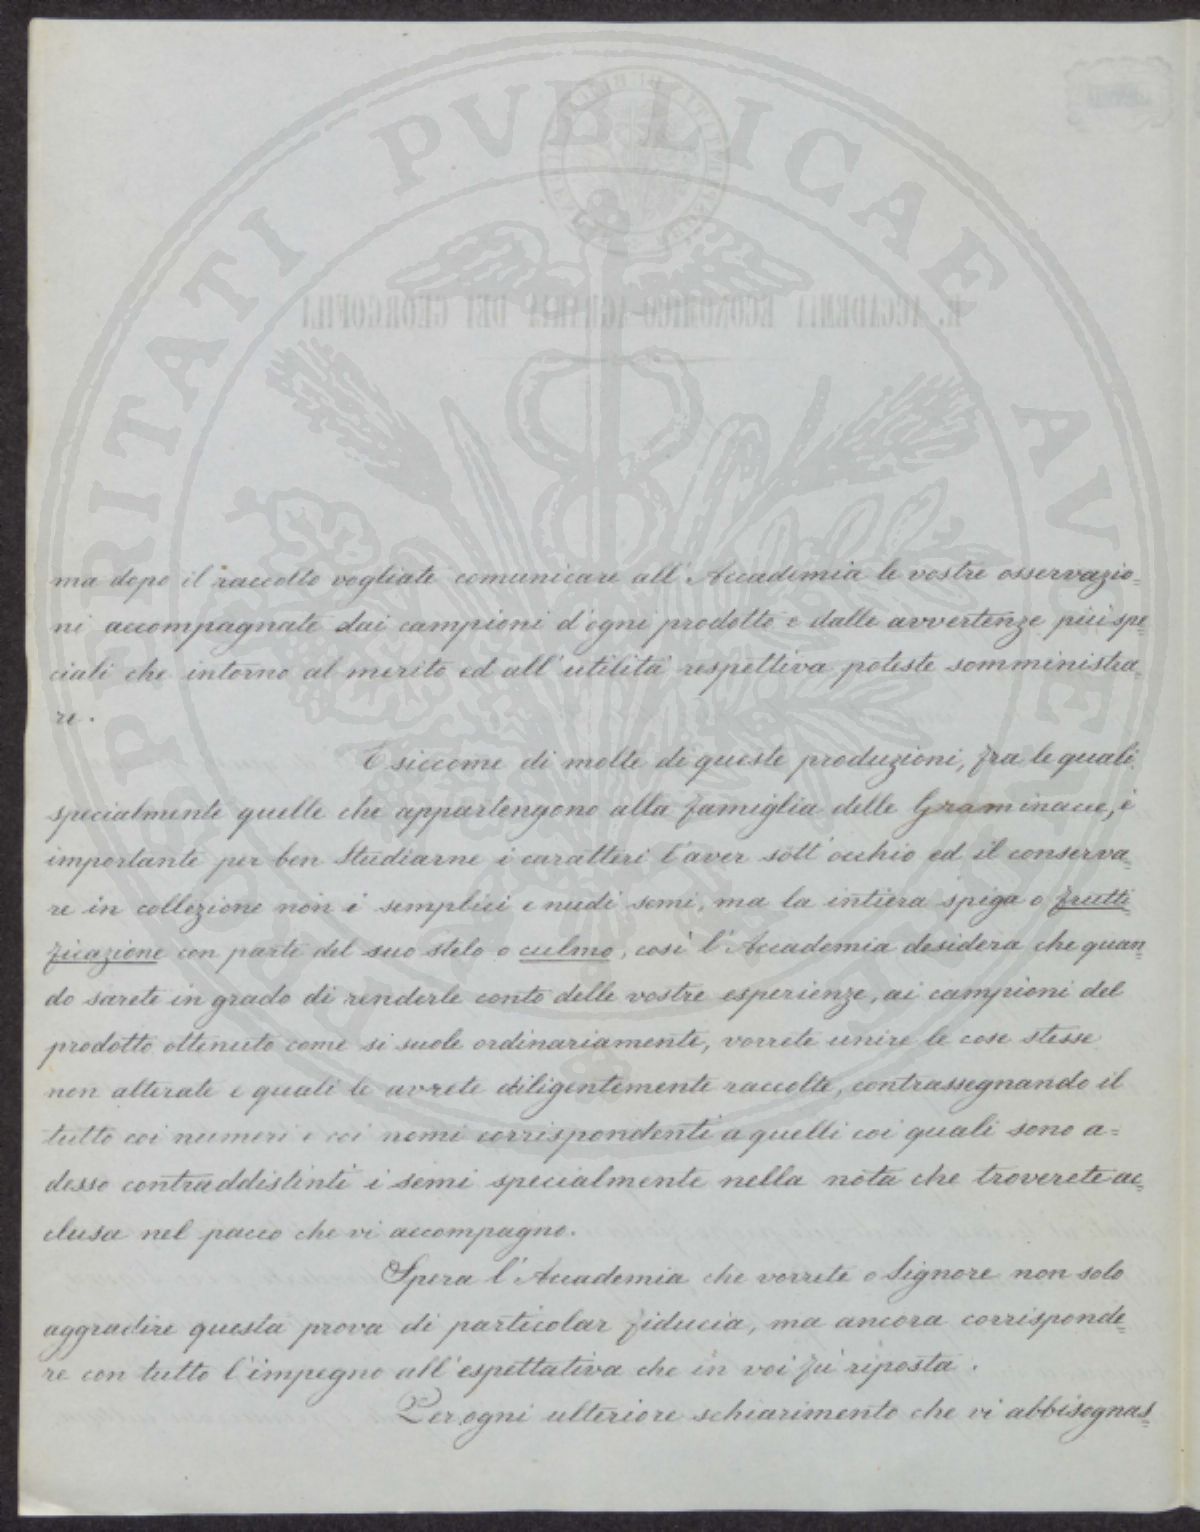 PROSPERITATI PVBLICAE AVGENDAE
R. ACCADEMIA ECONOMICO-AGRARIA DEI GEORGOFILI
ma dopo il raccolto vogliate comunicare all' Accademia le vostre osservazio=
ni accompagnate dai campioni d'ogni prodotto e dalle avvertenze più spe=
ciali che intorno al merito ed all' utilità respettiva poteste somministra=
re.
E siccome di molte di queste produzioni, fra le quali
specialmente quelle che appartengono alla famiglia delle Graminacee, è
importante per ben studiarne i caratteri l'aver sott' occhio ed il conserva=
re in collezione non i semplici e nudi semi, ma la intiera spiga o frutti=
ficazione con parte del suo stelo o culmo, così l'Accademia desidera che quan=
do sarete in grado di renderle conto delle vostre esperienze, ai campioni del
prodotto ottenuto come si suole ordinariamente, vorrete unire le cose stesse
non alterate e quali le avrete diligentemente raccolte, contrassegnando il
tutto coi numeri e coi nomi corrispondenti a quelli coi quali sono a=
desso contraddistinti i semi specialmente nella nota che troverete ac=
clusa nel pacco che vi accompagno.
Spera l'Accademia che vorrete o Signore non solo
aggradire questa prova di particolar fiducia, ma ancora corrisponde=
re con tutto l'impegno all' espettativa che in voi fu riposta.
Per ogni ulteriore schiarimento che vi abbisognas=